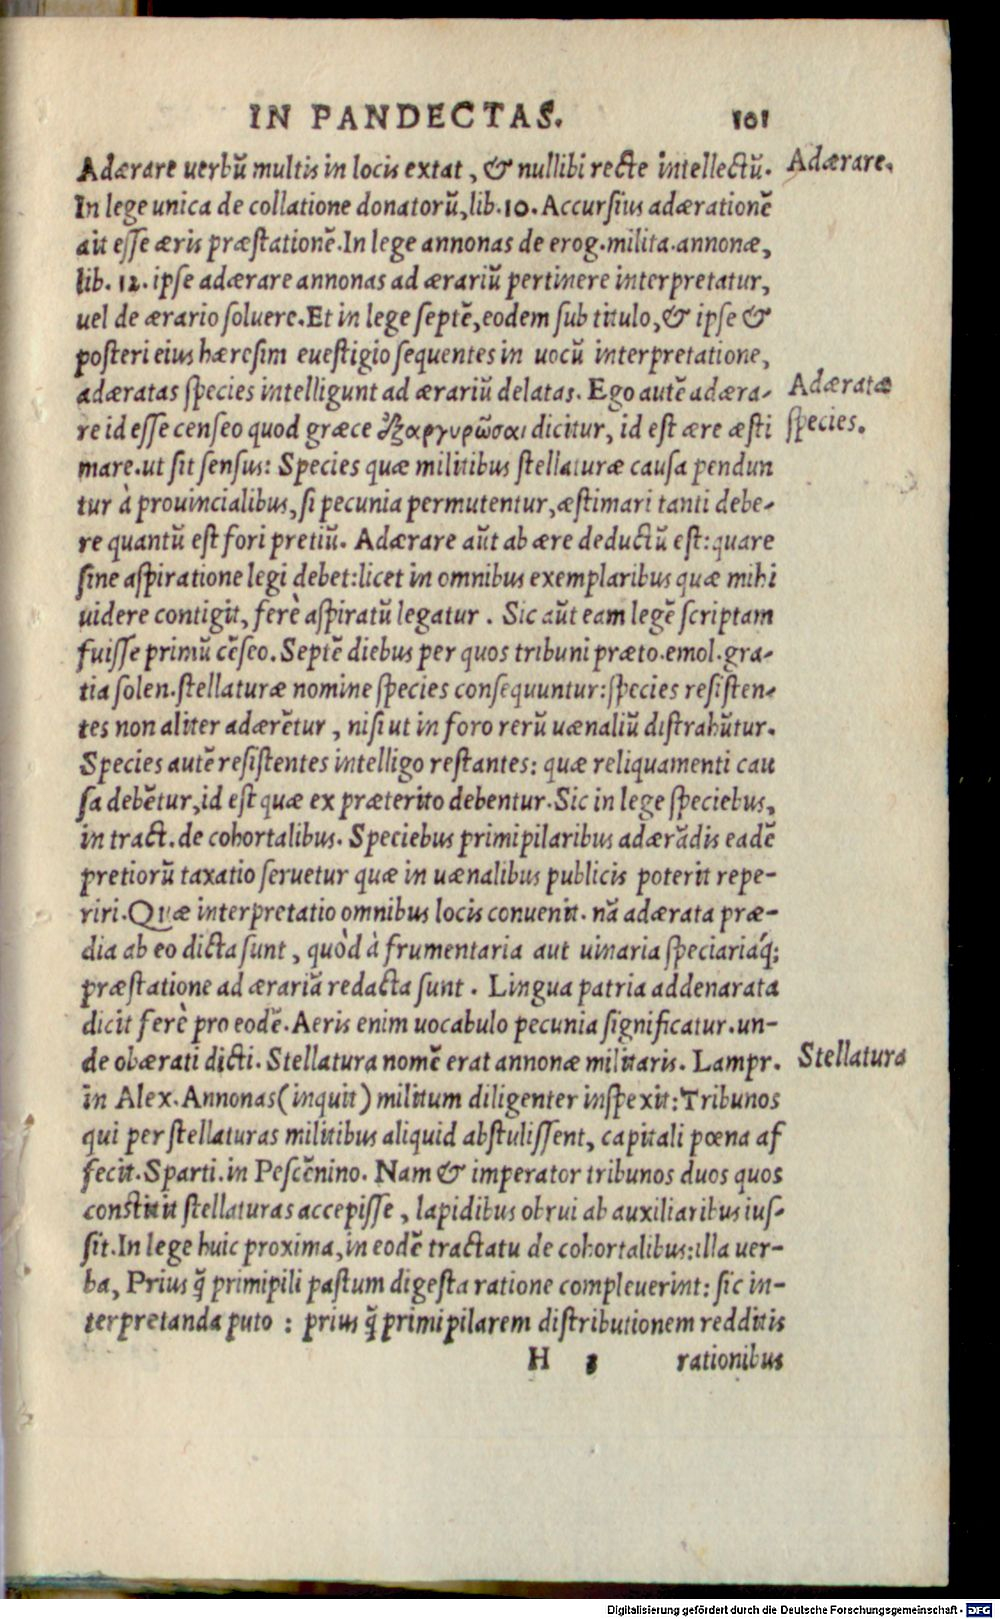 IN PANDECTAS. 101
Adærare uerbū multis in locis extat, & nullibi recte intellectū. Adærare.
In lege unica de collatione donatorū, lib. 10. Accursius adærationē
ait esse æris præstationē. In lege annonas de erog. milita. annonæ,
lib. 12. ipse adærare annonas ad ærariū pertinere interpretatur,
uel de ærario soluere. Et in lege septē, eodem sub titulo, & ipse &
posteri eius hæresim euestigio sequentes in uocū interpretatione,
adæratas species intelligunt ad ærariū delatas. Ego autē adæra- Adæratæ
re id esse censeo quod græce ἐξαργυρῶσαι dicitur, id est ære æsti species.
mare. ut sit sensus: Species quæ militibus stellaturæ causa pendun
tur à prouincialibus, si pecunia permutentur, æstimari tanti debe-
re quantū est fori pretiū. Adærare aūt ab ære deductū est: quare
sine aspiratione legi debet: licet in omnibus exemplaribus quæ mihi
uidere contigit, ferè aspiratū legatur. Sic aūt eam legē scriptam
fuisse primū cēseo. Septē diebus per quos tribuni præto. emol. gra-
tia solen. stellaturæ nomine species consequuntur: species resisten-
tes non aliter adærētur, nisi ut in foro rerū uænaliū distrahūtur.
Species autē resistentes intelligo restantes: quæ reliquamenti cau
sa debētur, id est quæ ex præterito debentur. Sic in lege speciebus,
in tract. de cohortalibus. Speciebus primipilaribus adærādis eadē
pretiorū taxatio seruetur quæ in uænalibus publicis poterit repe-
riri. Quæ interpretatio omnibus locis conuenit. nā adærata præ-
dia ab eo dicta sunt, quòd à frumentaria aut uinaria speciariáq́;
præstatione ad ærariā redacta sunt. Lingua patria addenarata
dicit ferè pro eodē. Aeris enim uocabulo pecunia significatur. un-
de obærati dicti. Stellatura nomē erat annonæ militaris. Lampr. Stellatura
in Alex. Annonas (inquit) militum diligenter inspexit: Tribunos
qui per stellaturas militibus aliquid abstulissent, capitali pœna af
fecit. Sparti. in Pescēnino. Nam & imperator tribunos duos quos
constitit stellaturas accepisse, lapidibus obrui ab auxiliaribus ius-
sit. In lege huic proxima, in eodē tractatu de cohortalibus: illa uer-
ba, Prius q̄ primipili pastum digesta ratione compleuerint: sic in-
terpretanda puto: prius q̄ primipilarem distributionem redditis
H 3 rationibus
Digitalisierung gefördert durch die Deutsche Forschungsgemeinschaft - DFG